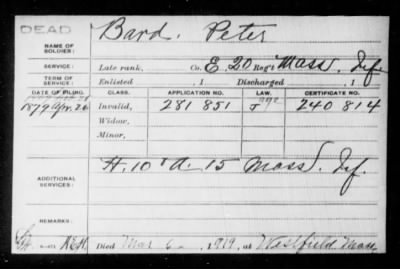 DEAD
NAME OF SOLDIER: Bard, Peter
SERVICE: Late rank, Co. E, 20 Reg't Mass. Inf.
TERM OF SERVICE: Enlisted , 1 Discharged , 1
DATE OF FILING. CLASS. APPLICATION NO. LAW. CERTIFICATE NO.
1879 Apr. 26 Invalid, 281 851 240 814
Widow,
Minor,
ADDITIONAL SERVICES: H. 10 & A. 15 Mass. Inf.
REMARKS:
Died Mar 6 , 1919, at Westfield Mass